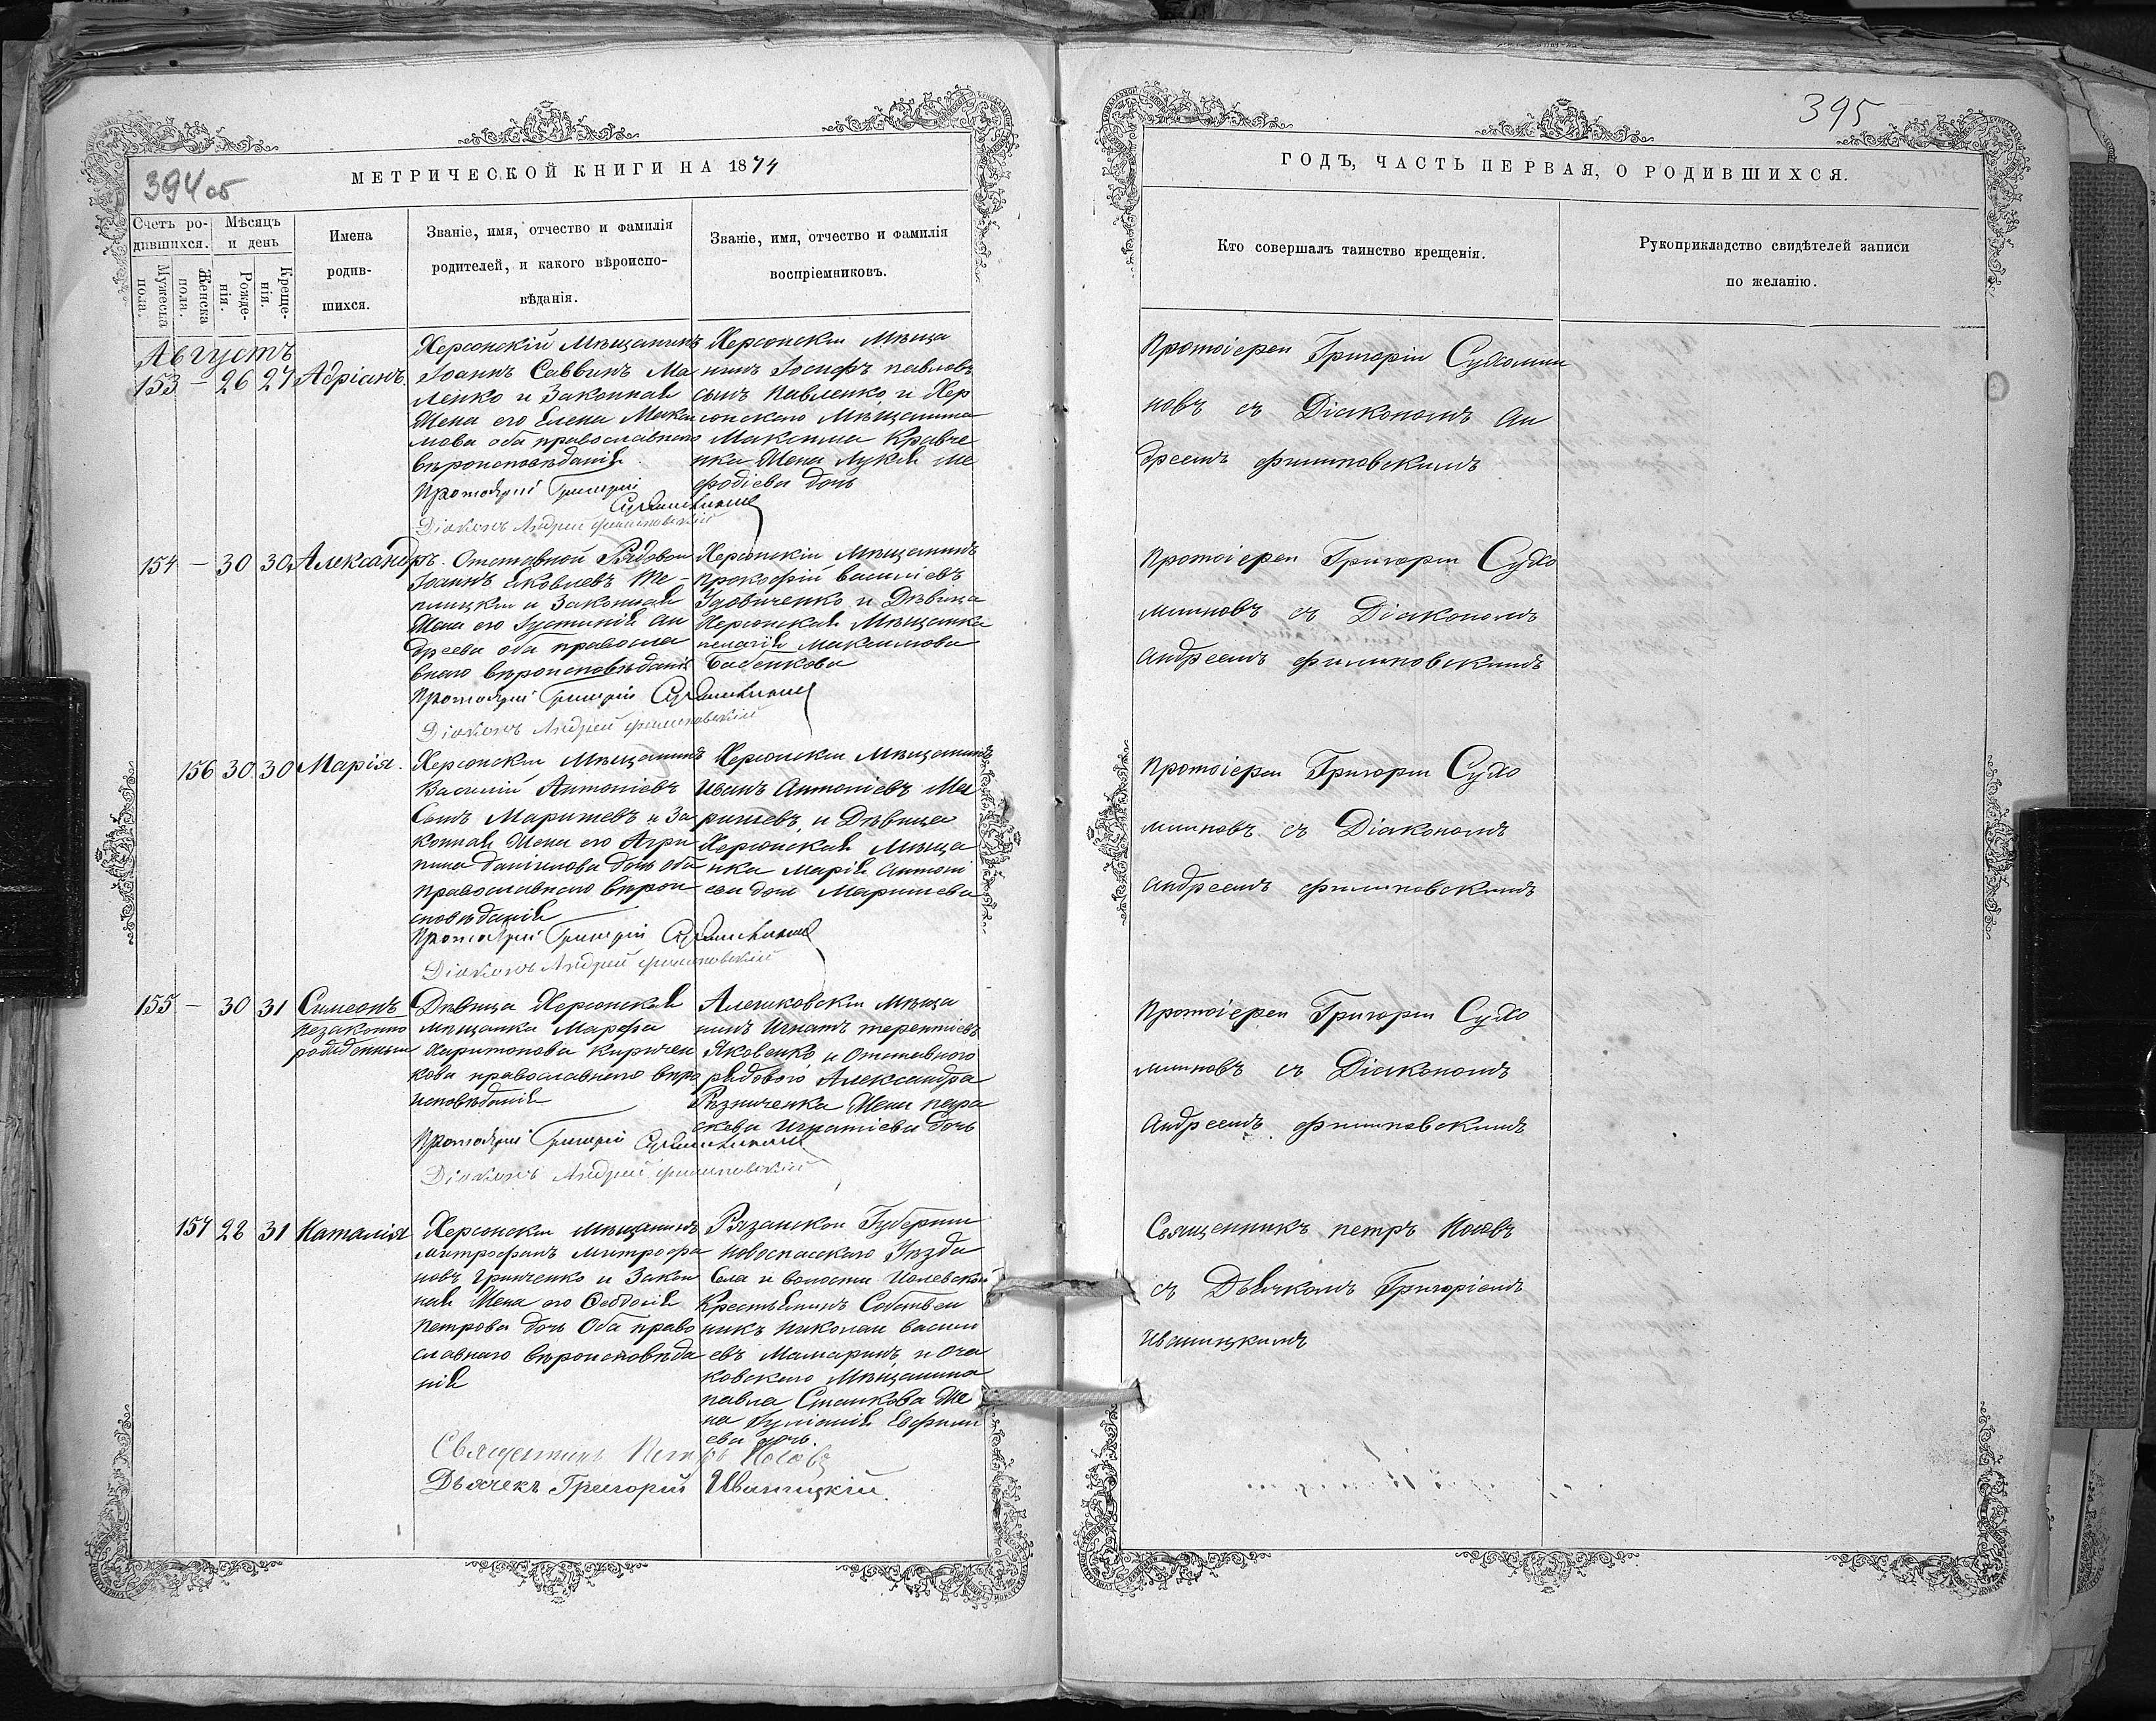 394 об
МЕТРИЧЕСКОЙ КНИГИ НА 1874
Счетъ ро-
дившихся.
Мужеска
пола.
Женска
пола.
Мѣсяцъ
и день
Рожде-
нія.
Креще-
нія.
Имена
родив-
шихся.
Званіе, имя, отчество и фамилія
родителей, и какого вѣроиспо-
вѣданія.
Званіе, имя, отчество и фамилія
воспріемниковъ.
Августъ
153 — 26 27 Адріанъ.
Херсонскій Мѣщанинъ
Іоаннъ Саввинъ Ма
ленко и Законная
Жена его Елена Макси
мова оба православнаго
вѣроисповѣданія.
Протоіерей Григорій
Сухомлиновъ
Діаконъ Андрей Филиповскій
Херсонскій Мѣща
нинъ Іосифъ павловъ
сынъ Павленко и Хер
сонскаго Мѣщанина
Максима Кравче
нка Жена Лукія Ме
фодіева дочь
154 — 30 30 Александръ.
Отставной Рядовой
Іоаннъ Яковлевъ Те-
плицкій и Законная
Жена его Іустинія Ан
дреева оба правосла
внаго вѣроисповѣданія
Протоіерей Григорій Сухомлиновъ
Діаконъ Андрей Филиповскій
Херсонскій Мѣщанинъ
Прокофій Василіевъ
Удовиченко и Дѣвица
Херсонская Мѣщанка
пелагія Максимова
Бабенкова
156 30 30 Марія.
Херсонскій Мѣщанинъ
Василій Антоніевъ
Сынъ Маришевъ и За
конная Жена его Агри
пина даніилова дочь оба
православнаго вѣрои
сповѣданія
Протоіерей Григорій Сухомлиновъ
Діаконъ Андрей Филиповскій
Херсонскій Мѣщанинъ
Иванъ Антоніевъ Ма
ришевъ и Дѣвица
Херсонская Мѣща
нка Марія Антоні
ева дочь Маришева
155 — 30 31 Симеонъ
незаконно
рожденный
Дѣвица Херсонская
мѣщанка Марфа
Харитонова Киричен
кова православнаго вѣро
исповѣданія
Протоіерей Григорій Сухомлиновъ
Діаконъ Андрей Филиповскій
Алешковскій Мѣща
нинъ Игнатъ терентіевъ
Яковенко и Отставного
рядового Александра
Рѣзниченка Жена пара
скева Игнатіева дочь
157 28 31 Наталія
Херсонскій мѣщанинъ
митрофанъ митрофа
новъ Гринченко и Закон
ная Жена его Феодосія
Петрова дочь Оба право
славнаго вѣроисповѣда
нія
Рязанской Губерніи
Новоспасскаго Уѣзда
Села и волости
Крестьянинъ Собствен
никъ Николай васил
евъ Мамаринъ и Оча
ковскаго Мѣщанина
павла Станкова Же
на Іуліанія Евфими
ева дочь.
Священникъ Петръ Носовъ
Дьячекъ Григорій Иваницкій
395
ГОДЪ, ЧАСТЬ ПЕРВАЯ, О РОДИВШИХСЯ.
Кто совершалъ таинство крещенія.
Рукоприкладство свидѣтелей записи
по желанію.
Протоіерей Григорій Сухомли
новъ съ Діакономъ Ан
дреемъ Филиповскимъ
Протоіерей Григорій Сухо
млиновъ съ Діакономъ
Андреемъ Филиповскимъ
Протоіерей Григорій Сухо
млиновъ съ Діакономъ
Андреемъ Филиповскимъ
Протоіерей Григорій Сухо
млиновъ съ Діакономъ
Андреемъ Филиповскимъ
Священникъ петръ Носовъ
съ Дьячкомъ Григоріемъ
Иваницкимъ